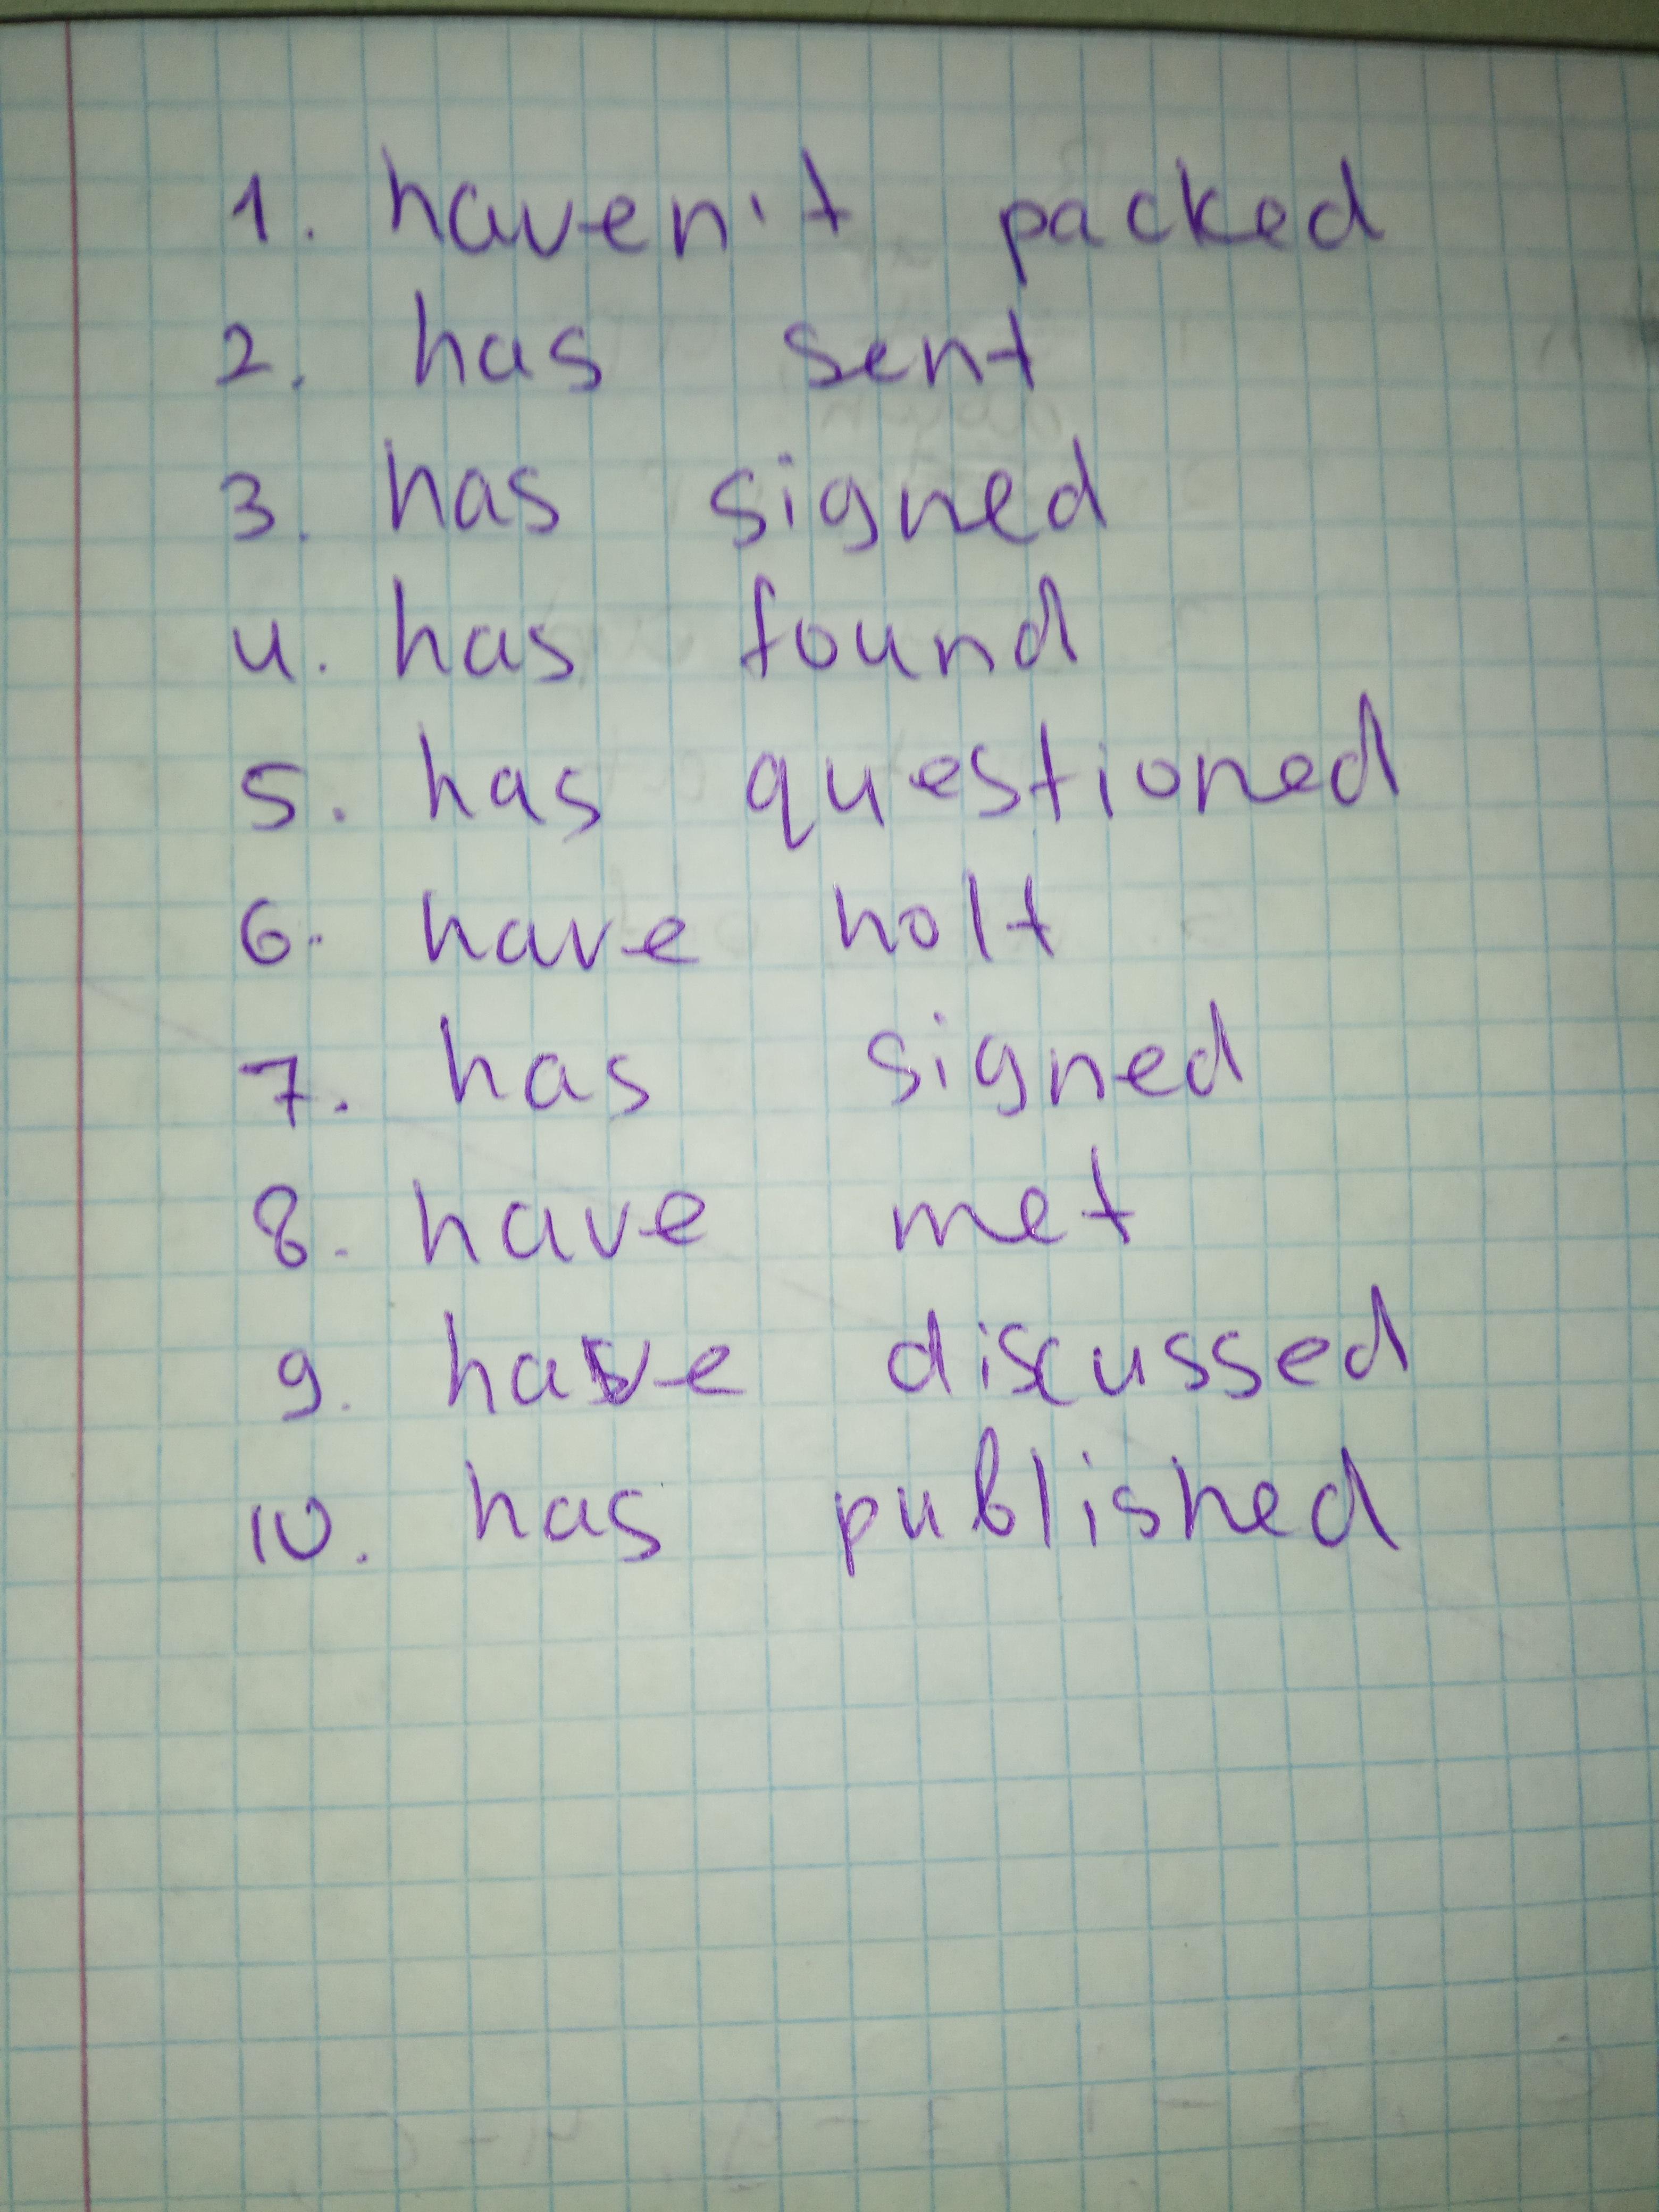 1. haven't packed
2. has sent
3. has signed
4. has found
5. has questioned
6. have holt
7. has signed
8. have met
9. have discussed
10. has published